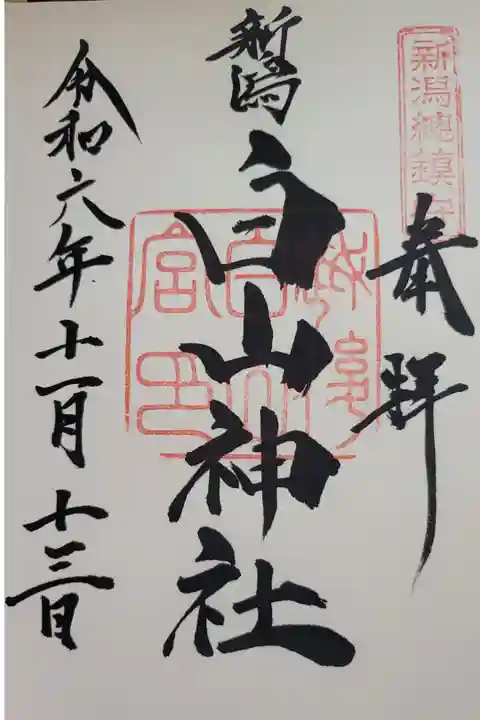 奉拝
新潟總鎮守
新潟
白山神社
令和六年十一月十三日